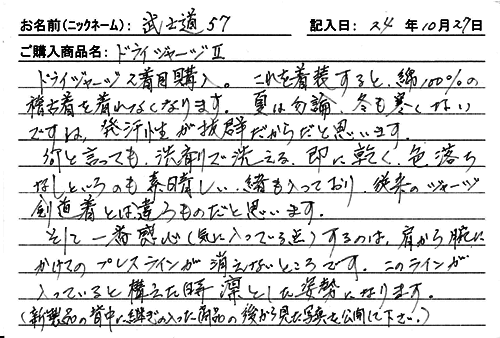 お名前(ニックネーム): 武士道57 記入日: 24年10月27日
ご購入商品名: ドライジャージⅡ
ドライジャージ2着目購入。これを着装すると、綿100%の
稽古着を着れなくなります。夏は勿論、冬も寒くない
ですね、発汗性が抜群だからだと思います。
何と言っても、洗剤で洗える、即に乾く、色落ち
なしというのも素晴しい、緒も入っており、従来のジャージ
剣道着とは違うものだと思います。
そして一番感心(気に入っている点)するのは、肩から腕に
かけてのプレスラインが消えないところです。このラインが
入っていると構えた時、凛とした姿勢になります。
(新製品の背中に継ぎの入った商品の後から見た写真を公開して下さい。)